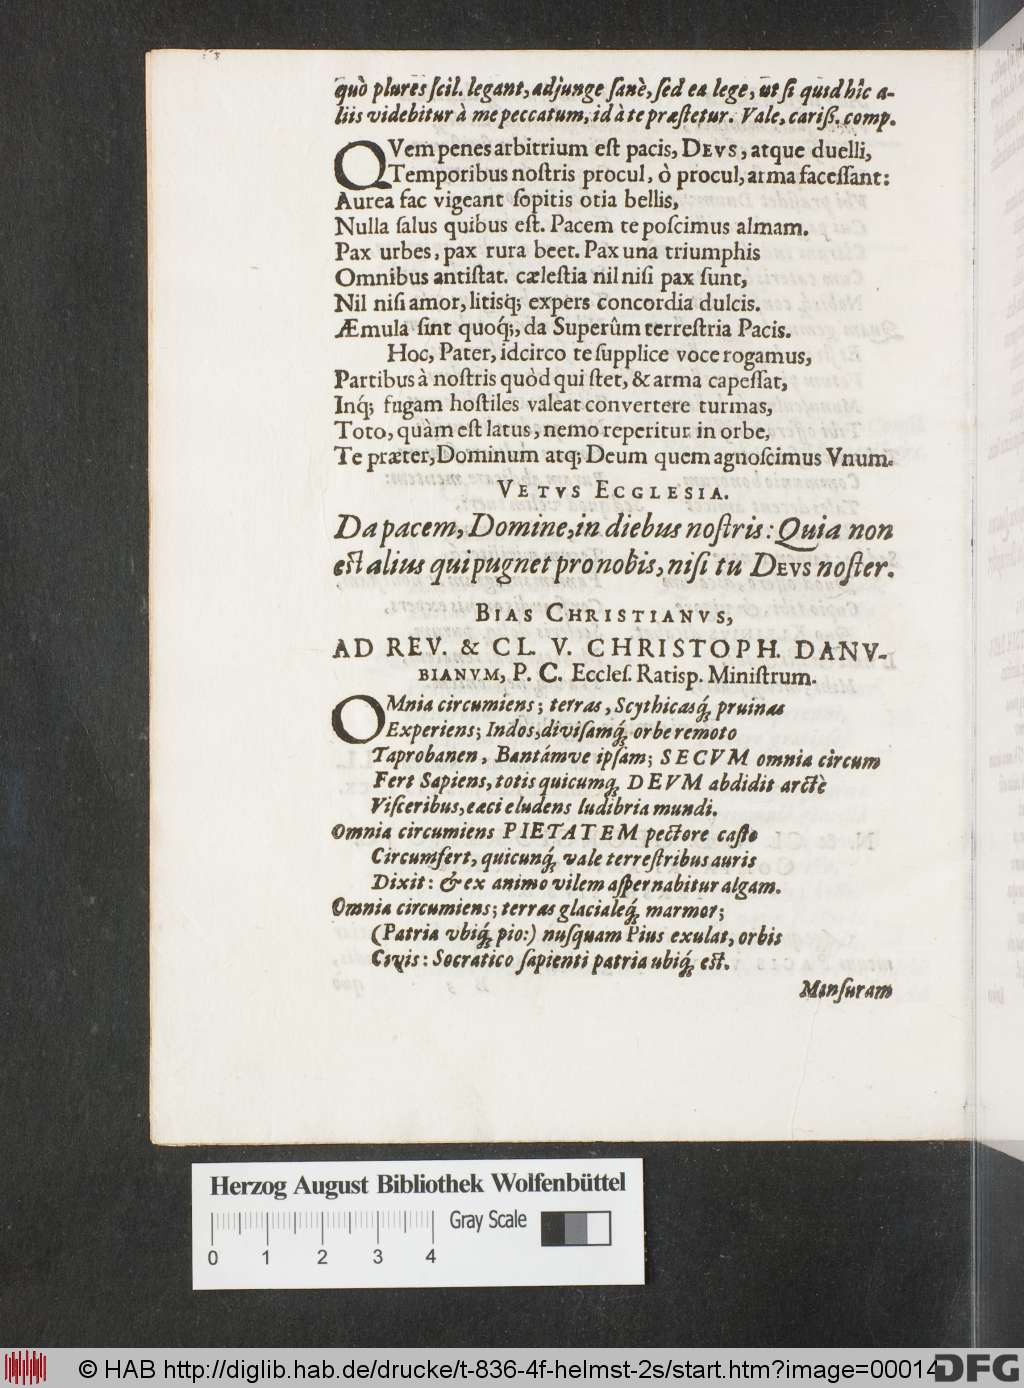 quò plures ſcil. legant, adjunge ſanè, ſed ea lege, ut ſi quid hîc a-
liis videbitur à me peccatum, id à te præſtetur. Vale, cariß. comp.
QVem penes arbitrium eſt pacis, DEVS, atque duelli,
Temporibus noſtris procul, ò procul, arma faceſſant:
Aurea fac vigeant ſopitis otia bellis,
Nulla ſalus quibus eſt. Pacem te poſcimus almam.
Pax urbes, pax rura beet. Pax una triumphis
Omnibus antiſtat. cæleſtia nil niſi pax ſunt,
Nil niſi amor, litisq; expers concordia dulcis.
Æmula ſint quoq́;, da Superûm terreſtria Pacis.
Hoc, Pater, idcirco te ſupplice voce rogamus,
Partibus à noſtris quòd qui ſtet, & arma capeſſat,
Inq́; fugam hoſtiles valeat convertere turmas,
Toto, quàm eſt latus, nemo reperitur in orbe,
Te præter, Dominum atq; Deum quem agnoſcimus Vnum.
VETVS ECGLESIA.
Da pacem, Domine, in diebus noſtris: Quia non
eſt alius qui pugnet pro nobis, niſi tu DEVS noſter.
BIAS CHRISTIANVS,
AD REV. & CL. V. CHRISTOPH. DANV-
BIANVM, P. C. Eccleſ. Ratisp. Miniſtrum.
OMnia circumiens; terras, Scythicasq́; pruinas
Experiens; Indos, diviſamq́; orbe remoto
Taprobanen, Bantámve ipſam; SECVM omnia circum
Fert Sapiens, totis quicumq; DEVM abdidit arctè
Viſceribus, eaci eludens ludibria mundi.
Omnia circumiens PIETATEM pectore caſto
Circumfert, quicunq́; vale terreſtribus auris
Dixit: & ex animo vilem aſpernabitur algam.
Omnia circumiens; terras glacialeq́; marmor;
(Patria vbiq́; pio:) nuſquam Pius exulat, orbis
Civis: Socratico ſapienti patria ubiq́; eſt.
Manſuram
Herzog August Bibliothek Wolfenbüttel
Gray Scale
0 1 2 3 4
© HAB http://diglib.hab.de/drucke/t-836-4f-helmst-2s/start.htm?image=00014
DFG